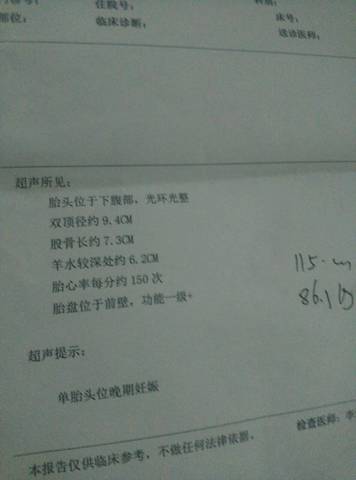 住院号：
部位： 临床诊断： 床号：
送诊医师：
超声所见：
胎头位于下腹部，光环光整
双顶径约9.4CM
股骨长约7.3CM
羊水较深处约6.2CM
胎心率每分约150次
胎盘位于前壁，功能一级+
115
86.1
超声提示：
单胎头位晚期妊娠
检查医师：李
本报告仅供临床参考，不做任何法律依据。